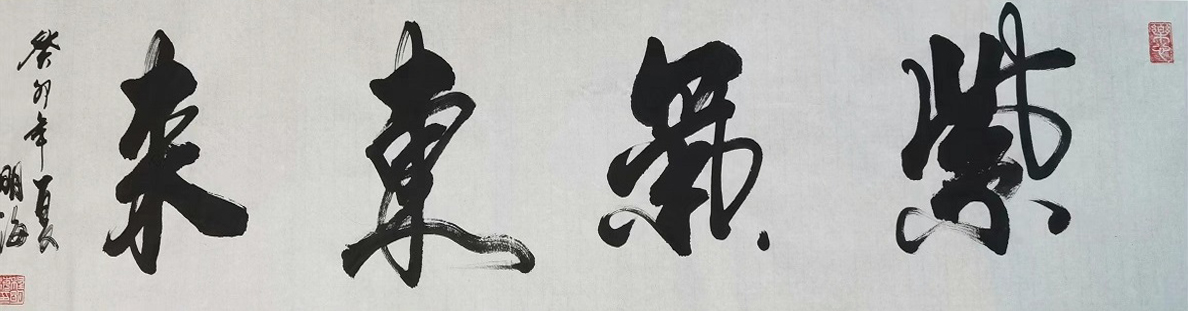 紫氣東來
癸卯年夏
明海